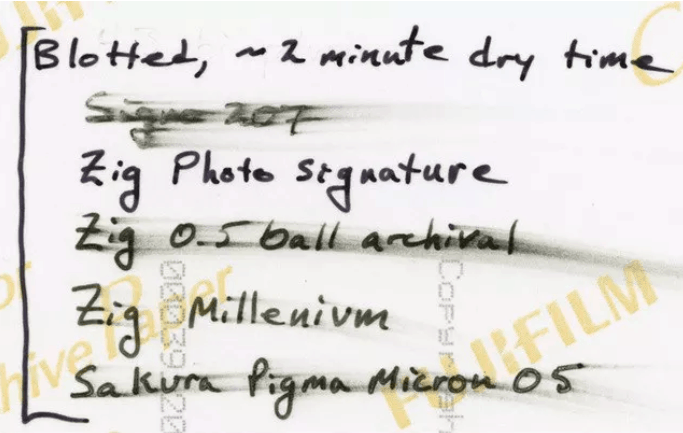 Blotted, ~ 2 minute dry time
Signo 207
Zig Photo signature
Zig 0.5 ball archival
Zig Millenium
Sakura Pigma Micron 05
FUJIFILM